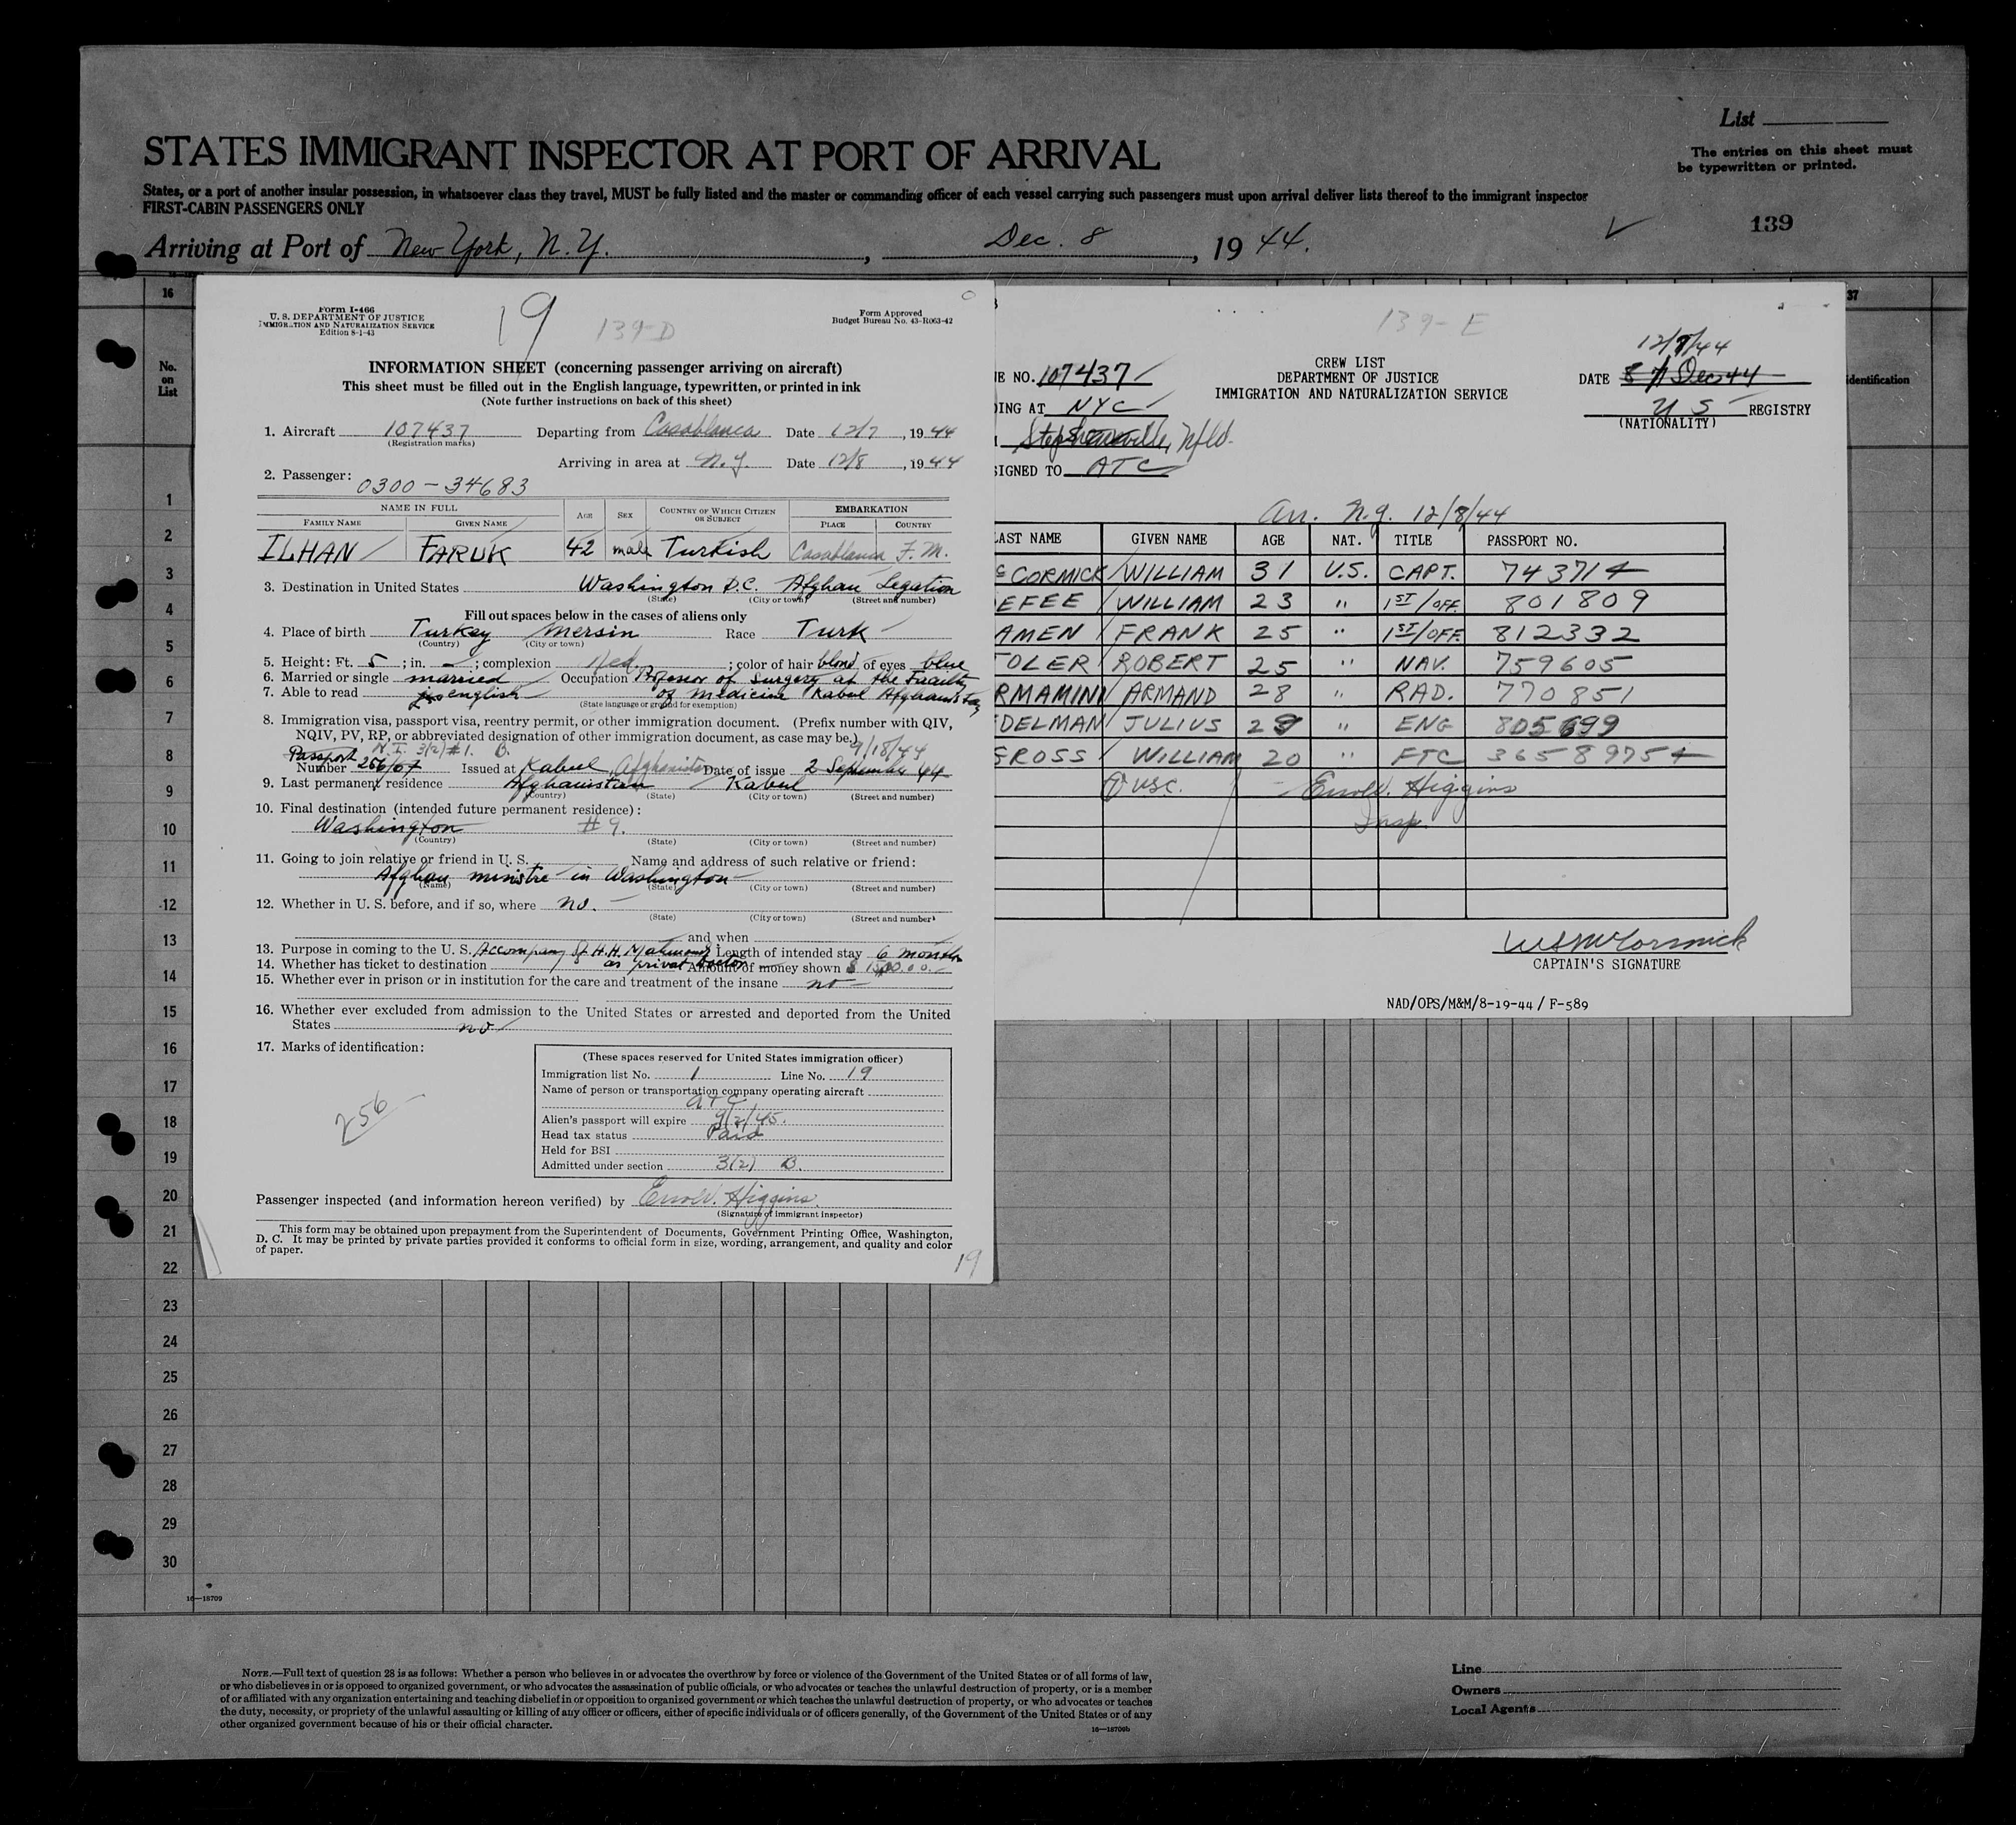 List
STATES IMMIGRANT INSPECTOR AT PORT OF ARRIVAL
The entries on this sheet must
be typewritten or printed.
States, or a port of another insular possession, in whatsoever class they travel, MUST be fully listed and the master or commanding officer of each vessel carrying such passengers must upon arrival deliver lists thereof to the immigrant inspector
FIRST-CABIN PASSENGERS ONLY
139
Arriving at Port of New York, N.Y. , Dec. 8 , 19 44.
16
37
No.
on
List
identification
1
2
3
4
5
6
7
8
9
10
11
12
13
14
15
16
17
18
19
20
21
22
23
24
25
26
27
28
29
30
16—18709
Form I-466
U. S. DEPARTMENT OF JUSTICE
IMMIGRATION AND NATURALIZATION SERVICE
Edition 8-1-43
19
139-D
Form Approved
Budget Bureau No. 43-R063-42
INFORMATION SHEET (concerning passenger arriving on aircraft)
This sheet must be filled out in the English language, typewritten, or printed in ink
(Note further instructions on back of this sheet)
1. Aircraft 107437 Departing from Casablanca Date 12/7 , 19 44
(Registration marks)
Arriving in area at N.Y. Date 12/8 , 19 44
2. Passenger: 0300-34683
NAME IN FULL
FAMILY NAME GIVEN NAME AGE SEX COUNTRY OF WHICH CITIZEN OR SUBJECT EMBARKATION
PLACE COUNTRY
ILHAN FARUK 42 male Turkish Casablanca F. M.
3. Destination in United States Washington D.C. Afghan Legation
(State) (City or town) (Street and number)
Fill out spaces below in the cases of aliens only
4. Place of birth Turkey Mersin Race Turk
(Country) (City or town)
5. Height: Ft. 5 ; in. - ; complexion Red. ; color of hair blond of eyes blue
6. Married or single married Occupation Professor of Surgery at the Faculty
7. Able to read yes english of medicine Kabul Afghanistan
(State language or ground for exemption)
8. Immigration visa, passport visa, reentry permit, or other immigration document. (Prefix number with QIV,
NQIV, PV, RP, or abbreviated designation of other immigration document, as case may be.)
Passport N.I. 3(2) #1. B. 9/18/44
Number 256/67 Issued at Kabul, Afghanistan Date of issue 2 September 44
9. Last permanent residence Afghanistan Kabul
(Country) (State) (City or town) (Street and number)
10. Final destination (intended future permanent residence):
Washington #9.
(Country) (State) (City or town) (Street and number)
11. Going to join relative or friend in U. S. Name and address of such relative or friend:
Afghan ministre in Washington
(Name) (State) (City or town) (Street and number)
12. Whether in U. S. before, and if so, where no.
(State) (City or town) (Street and number)
and when
13. Purpose in coming to the U. S. Accompany H.H. Mahmoud Length of intended stay 6 months
as privat doctor
14. Whether has ticket to destination Amount of money shown $
15. Whether ever in prison or in institution for the care and treatment of the insane no
16. Whether ever excluded from admission to the United States or arrested and deported from the United
States no
17. Marks of identification:
256
(These spaces reserved for United States immigration officer)
Immigration list No. 1 Line No. 19
Name of person or transportation company operating aircraft
ATC
Alien's passport will expire 9/2/45.
Head tax status Paid
Held for BSI
Admitted under section 3(2) B.
Passenger inspected (and information hereon verified) by Errol V. Higgins
(Signature of immigrant inspector)
This form may be obtained upon prepayment from the Superintendent of Documents, Government Printing Office, Washington,
D. C. It may be printed by private parties provided it conforms to official form in size, wording, arrangement, and quality and color
of paper.
19
139-E
12/8/44
NE NO. 107437
CREW LIST
DEPARTMENT OF JUSTICE
IMMIGRATION AND NATURALIZATION SERVICE
DATE 8 Dec 44
DING AT NYC
U S REGISTRY
(NATIONALITY)
Stephenville, Nfld.
SIGNED TO ATC
Arr. N.Y. 12/8/44
LAST NAME GIVEN NAME AGE NAT. TITLE PASSPORT NO.
CORMICK WILLIAM 31 U.S. CAPT. 743714
EFEE WILLIAM 23 " 1ST/OFF. 801809
AMEN FRANK 25 " 1ST/OFF. 812332
OLER ROBERT 25 " NAV. 759605
RMAMINI ARMAND 28 " RAD. 770851
DELMAN JULIUS 29 " ENG 805699
GROSS WILLIAM 20 " FTC 36589754
7 USC. Errol V. Higgins
Insp.
WSMcCormick
CAPTAIN'S SIGNATURE
NAD/OPS/M&M/8-19-44 / F-589
NOTE.—Full text of question 28 is as follows: Whether a person who believes in or advocates the overthrow by force or violence of the Government of the United States or of all forms of law,
or who disbelieves in or is opposed to organized government, or who advocates the assassination of public officials, or who advocates or teaches the unlawful destruction of property, or is a member
of or affiliated with any organization entertaining and teaching disbelief in or opposition to organized government or which teaches the unlawful destruction of property, or who advocates or teaches
the duty, necessity, or propriety of the unlawful assaulting or killing of any officer or officers, either of specific individuals or of officers generally, of the Government of the United States or of any
other organized government because of his or their official character.
16—18709b
Line
Owners
Local Agents